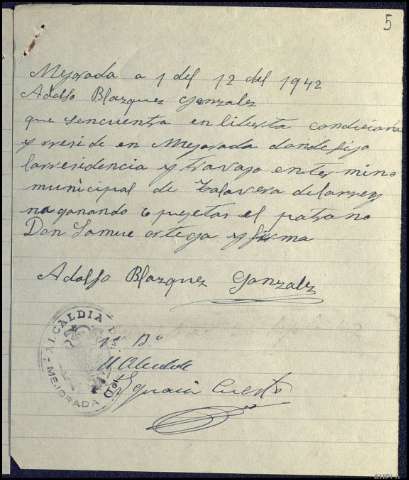 5
Mejorada a 1 del 12 del 1942
Adolfo Blazquez Gonzalez
que sencuenta en liberta condiciona
y reside en Mejorada donde fijo
la rresidencia y travajo en termino
municipal de Talavera de la rrey
na ganando 6 pesetas el patrono
Don Samue ortega y firma
Adolfo Blazquez Gonzalez
ALCALDIA DE
MEJORADA
V. Bº
El Alcalde
Cuesta